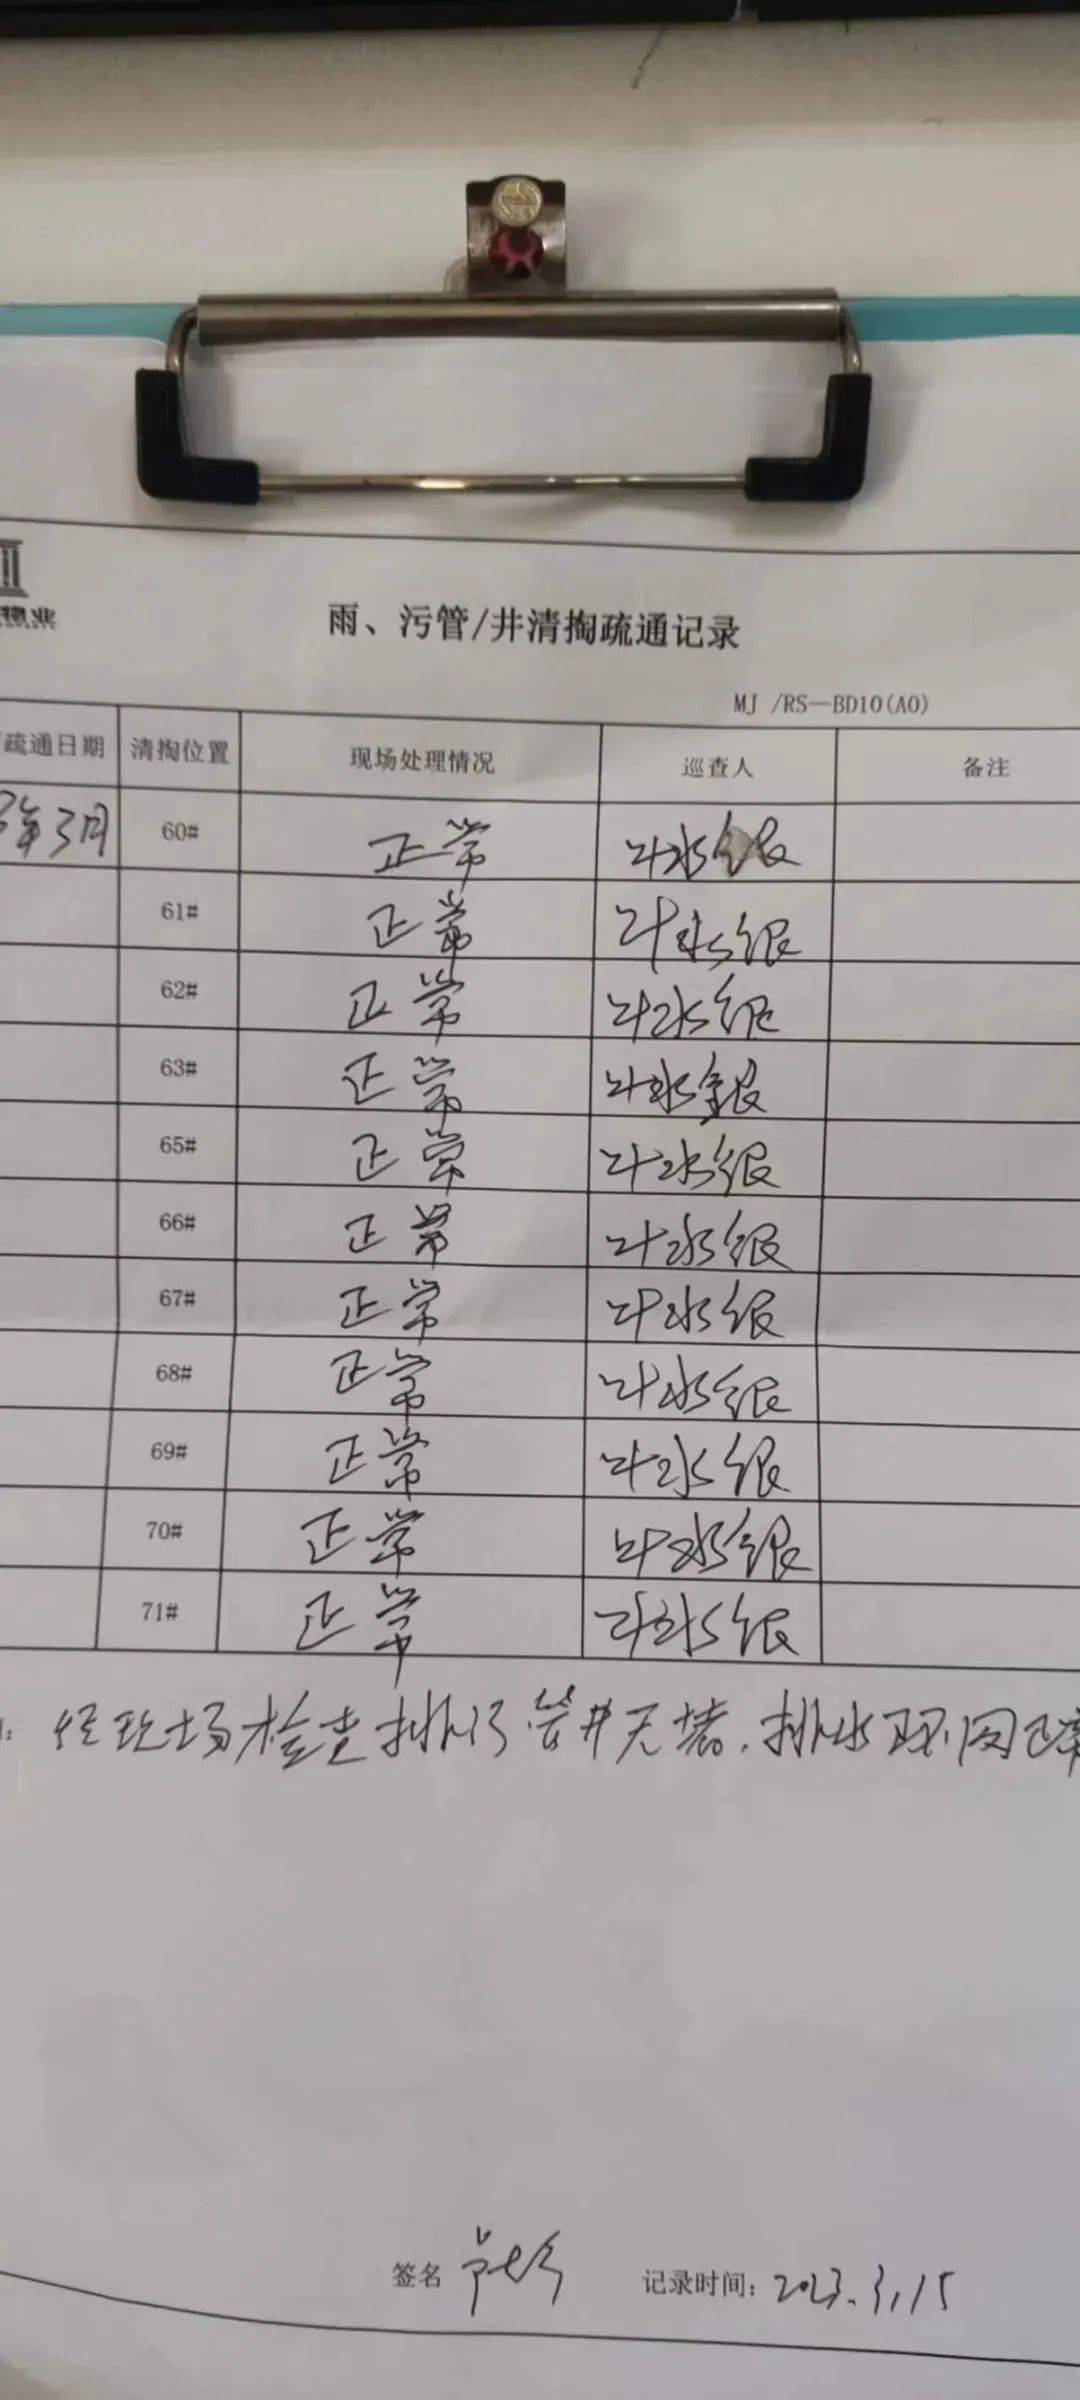 雨、污管/井清掏疏通记录
MJ /RS—BD10(A0)
疏通日期 清掏位置 现场处理情况 巡查人 备注
年3月 60# 正常 叶水银
61# 正常 叶水银
62# 正常 叶水银
63# 正常 叶水银
65# 正常 叶水银
66# 正常 叶水银
67# 正常 叶水银
68# 正常 叶水银
69# 正常 叶水银
70# 正常 叶水银
71# 正常 叶水银
: 经现场检查排污管井无堵.排水现
签名 记录时间: 2023.3.15